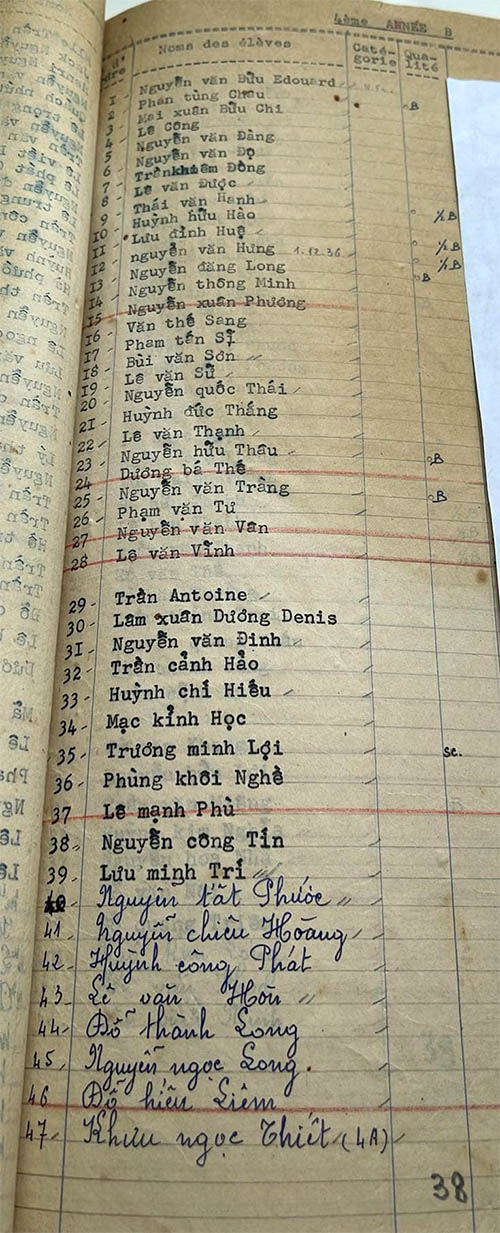 4ème ANNÉE B
Noms des élèves Caté- Qua-
gorie lité
1 - Nguyễn văn Bửu Edouard
2 - Phan tùng Châu B
3 - Mai xuân Bửu Chi
4 - Lê Công
5 - Nguyễn văn Đàng
6 - Nguyễn văn Đọ
7 - Trần khiêm Đồng
8 - Lê văn Được
9 - Thái văn Hạnh
10 - Huỳnh hữu Hào ½ B
11 - Lưu đình Huệ
12 - nguyễn văn Hưng 1.12.36 ½ B
13 - Nguyễn đăng Long ½ B
14 - Nguyễn thông Minh B
15 - Nguyễn xuân Phương
16 - Văn thế Sang
17 - Phạm tấn Sĩ
18 - Bùi văn Sơn
19 - Lê văn Sử
20 - Nguyễn quốc Thái
21 - Huỳnh đức Thắng
22 - Lê văn Thạnh
23 - Nguyễn hữu Thâu B
24 - Dương bá Thế
25 - Nguyễn văn Tràng B
26 - Phạm văn Tư
27 - Nguyễn văn Vân
28 - Lê văn Vĩnh
29 - Trần Antoine
30 - Lâm xuân Dương Denis
31 - Nguyễn văn Định
32 - Trần cảnh Hảo
33 - Huỳnh chí Hiếu
34 - Mạc kỉnh Học
35 - Trương minh Lợi sc.
36 - Phùng khôi Nghề
37 Lê mạnh Phù
38 - Nguyễn công Tín
39 - Lưu minh Trí
40 Nguyễn tất Phước
41 - Nguyễn chiêu Hoàng
42 - Huỳnh công Phát
43 - Lê văn Hôn
44 - Đỗ thành Long
45 - Nguyễn ngọc Long.
46 Đỗ hiếu Liêm
47 - Khưu ngọc Thiết (4A)
38